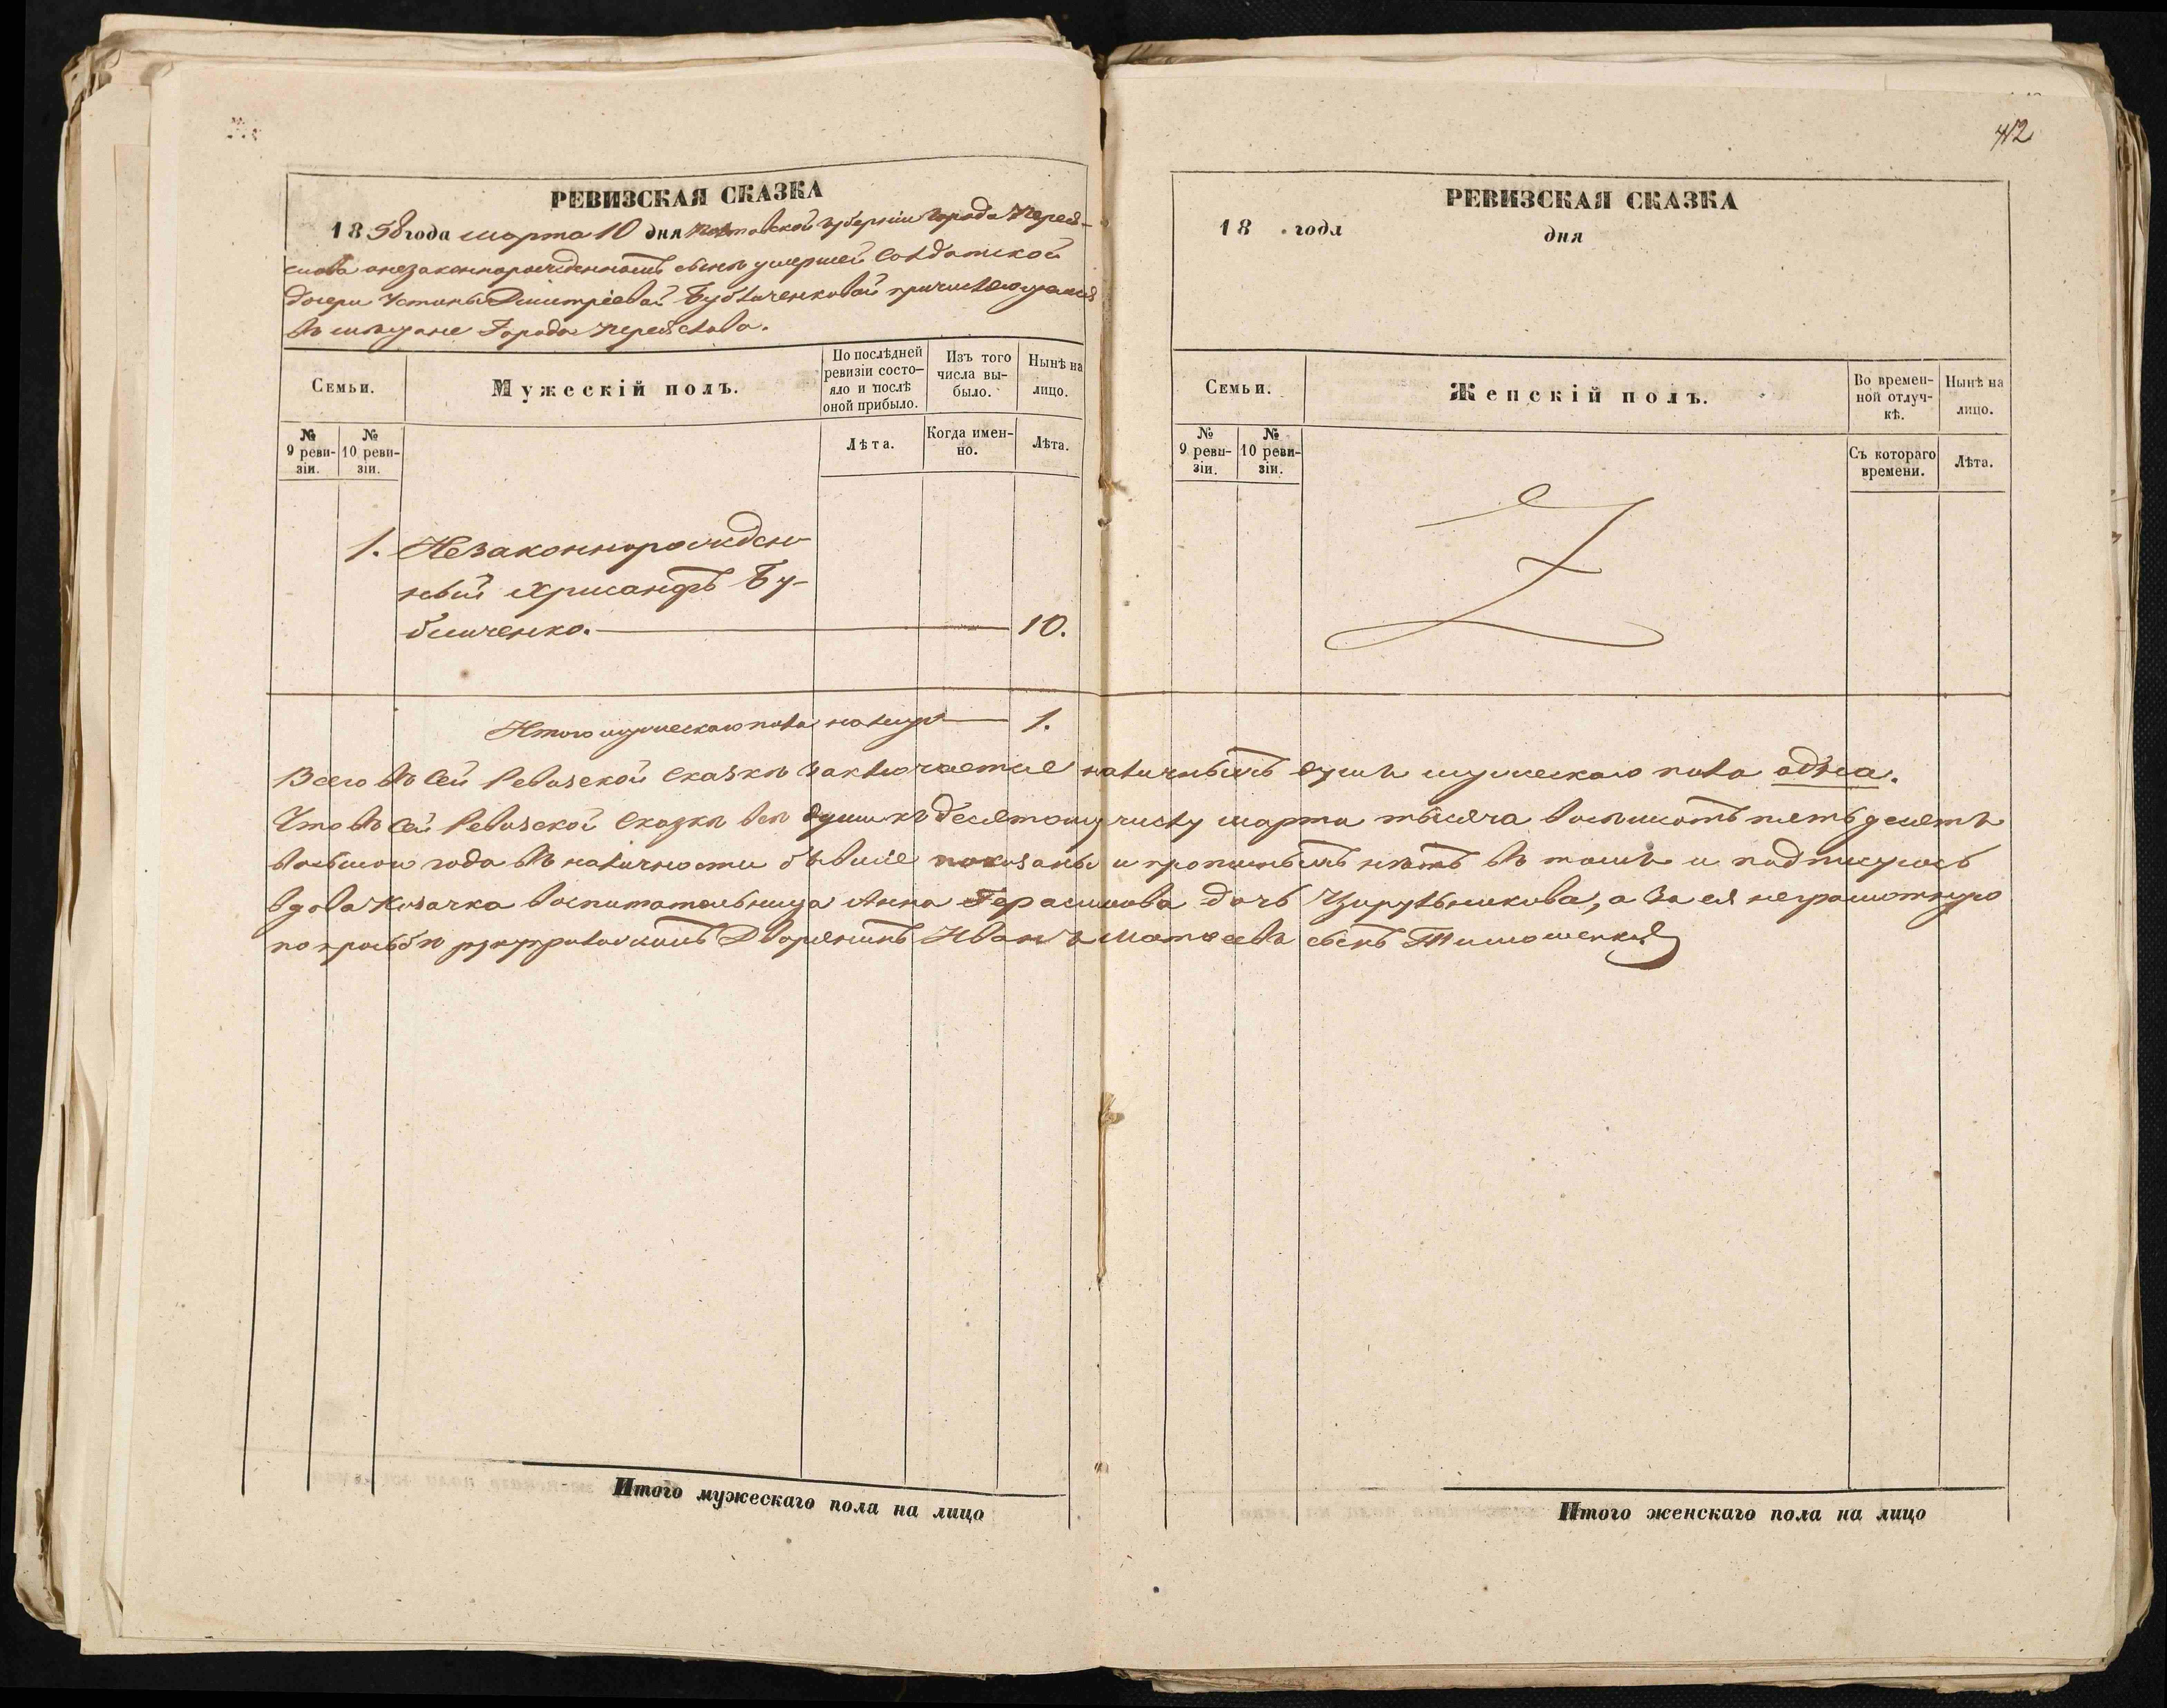 412
РЕВИЗСКАЯ СКАЗКА
1858 года марта 10 дня Полтавской губерніи города Перея-
слава о незаконнорожденномъ сынѣ умершей Солдатской
дочери Устиньи Дмитріевой Бубличенковой причисляющемся
въ мѣщане города Переяслава.
Семьи.
Мужескій полъ.
По послѣдней ревизіи состо-
яло и послѣ оной прибыло.
Изъ того числа вы-
было.
Нынѣ на лицо.
№ 9 реви-
зіи.
№ 10 реви-
зіи.
Лѣта.
Когда имен-
но.
Лѣта.
1. Незаконнорожден-
ный Хрисанфъ Бу-
бличенко. 10.
Итого мужескаго пола налицо 1.
РЕВИЗСКАЯ СКАЗКА
18 года
дня
Семьи.
Женскій полъ.
Во времен-
ной отлуч-
кѣ.
Нынѣ на лицо.
№ 9 реви-
зіи.
№ 10 реви-
зіи.
Съ котораго времени.
Лѣта.
Всего въ сей Ревизской сказкѣ заключается наличныхъ душъ мужескаго пола одна.
Что въ сей Ревизской сказкѣ всѣ души къ десятому числу марта тысяча восемьсотъ пятьдесятъ
восьмого года въ наличности бывшіе показаны и прописныхъ нѣтъ въ томъ и подпишусь
вдова козачка воспитательница Анна Герасимова дочь Цирульникова, а за ея неграмотную
по просьбѣ рукоприкладствовалъ Дворянинъ Иванъ Матвеевъ сынъ Тимошенко
Итого мужескаго пола на лицо
Итого женскаго пола на лицо